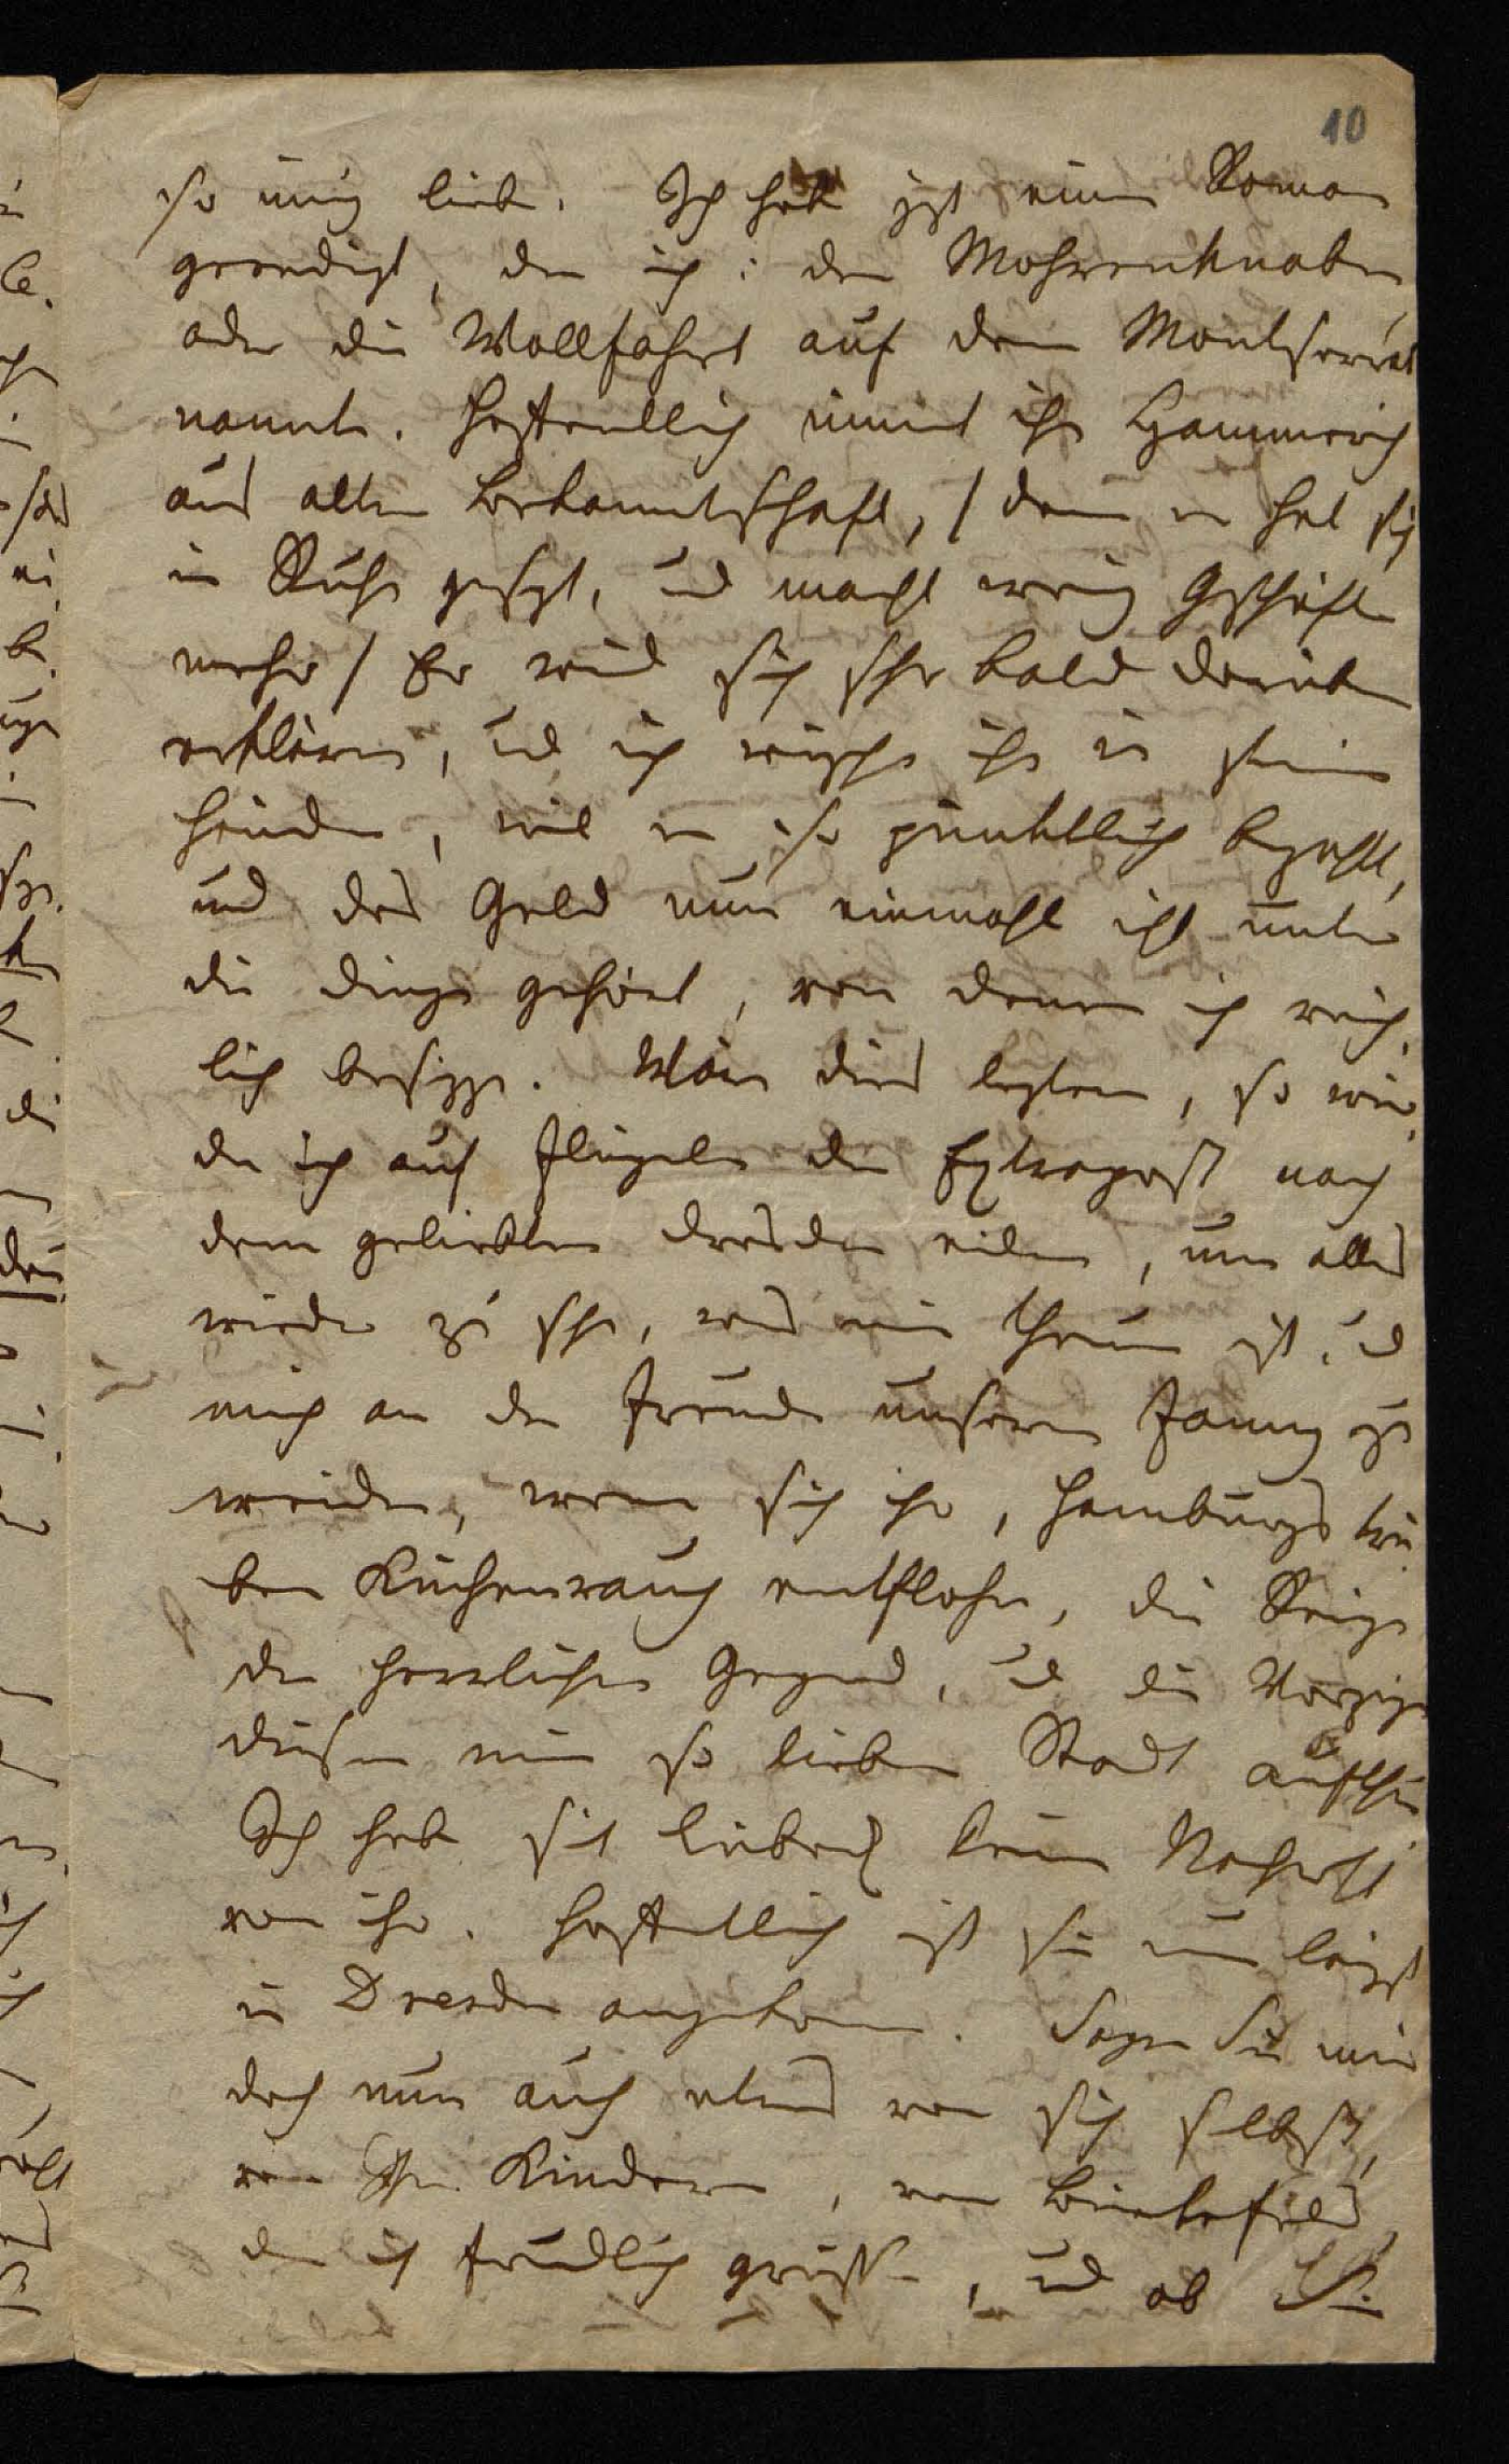 10
so innig liebe. Ich habe jzt einen Roman
geendigt, den ich: den Mohrenknaben
oder die Wallfahrt auf den Montserrat
nannte. Hoffentlich nimmt ihn Hammerich
aus alter Bekanntschaft, / denn er hat sich
in Ruhe gesezt, und macht wenig Geschäfte
mehr / Er wird sich sehr bald darüber
erklären, und ich wünsche ihn in seinen
Händen, weil er so pünktlich bezahlt,
und das Geld nun einmahl nicht unter
die Dinge gehört, von denen ich reich-
lich besizze. Wäre dies leztere, so wür-
de ich auf Flügeln der Extrapost nach
dem geliebten Dresden eilen, um alles
wieder zu sehn, was mir theuer ist, und
mich an der Freude unserer Fanny zu
weiden, wenn sich ihr, Hamburgs trü-
ben Küchenrauch entflohn, die Reize
der herrlichen Gegend, und die Vorzüge
dieser mir so lieben Stadt aufthun
Ich habe seit Lübeck keine Nachricht
von ihr. Hoffentlich ist sie nun längst
in Dresden angekommen. Sagen Sie mir
doch nun auch etwas von sich selbst,
von Ihren Kindern, von
den ich freundlich grüsse, und ob Sie